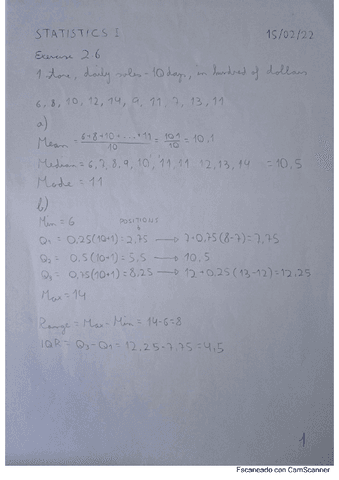 STATISTICS I 15/02/22
Exercise 2.6
1 store, daily sales - 10 days, in hundred of dollars
6, 8, 10, 12, 14, 9, 11, 7, 13, 11
a)
Mean = 6+8+10+...+11 / 10 = 101 / 10 = 10,1
Median = 6, 7, 8, 9, 10, 11, 11, 12, 13, 14 = 10,5
Mode = 11
b)
Min = 6 POSITIONS
Q₁ = 0,25(10+1) = 2,75 → 7+0,75(8-7) = 7,75
Q₂ = 0,5(10+1) = 5,5 → 10,5
Q₃ = 0,75(10+1) = 8,25 → 12+0,25(13-12) = 12,25
Max = 14
Range = Max - Min = 14-6=8
IQR = Q₃-Q₁ = 12,25-7,75 = 4,5
1
Escaneado con CamScanner